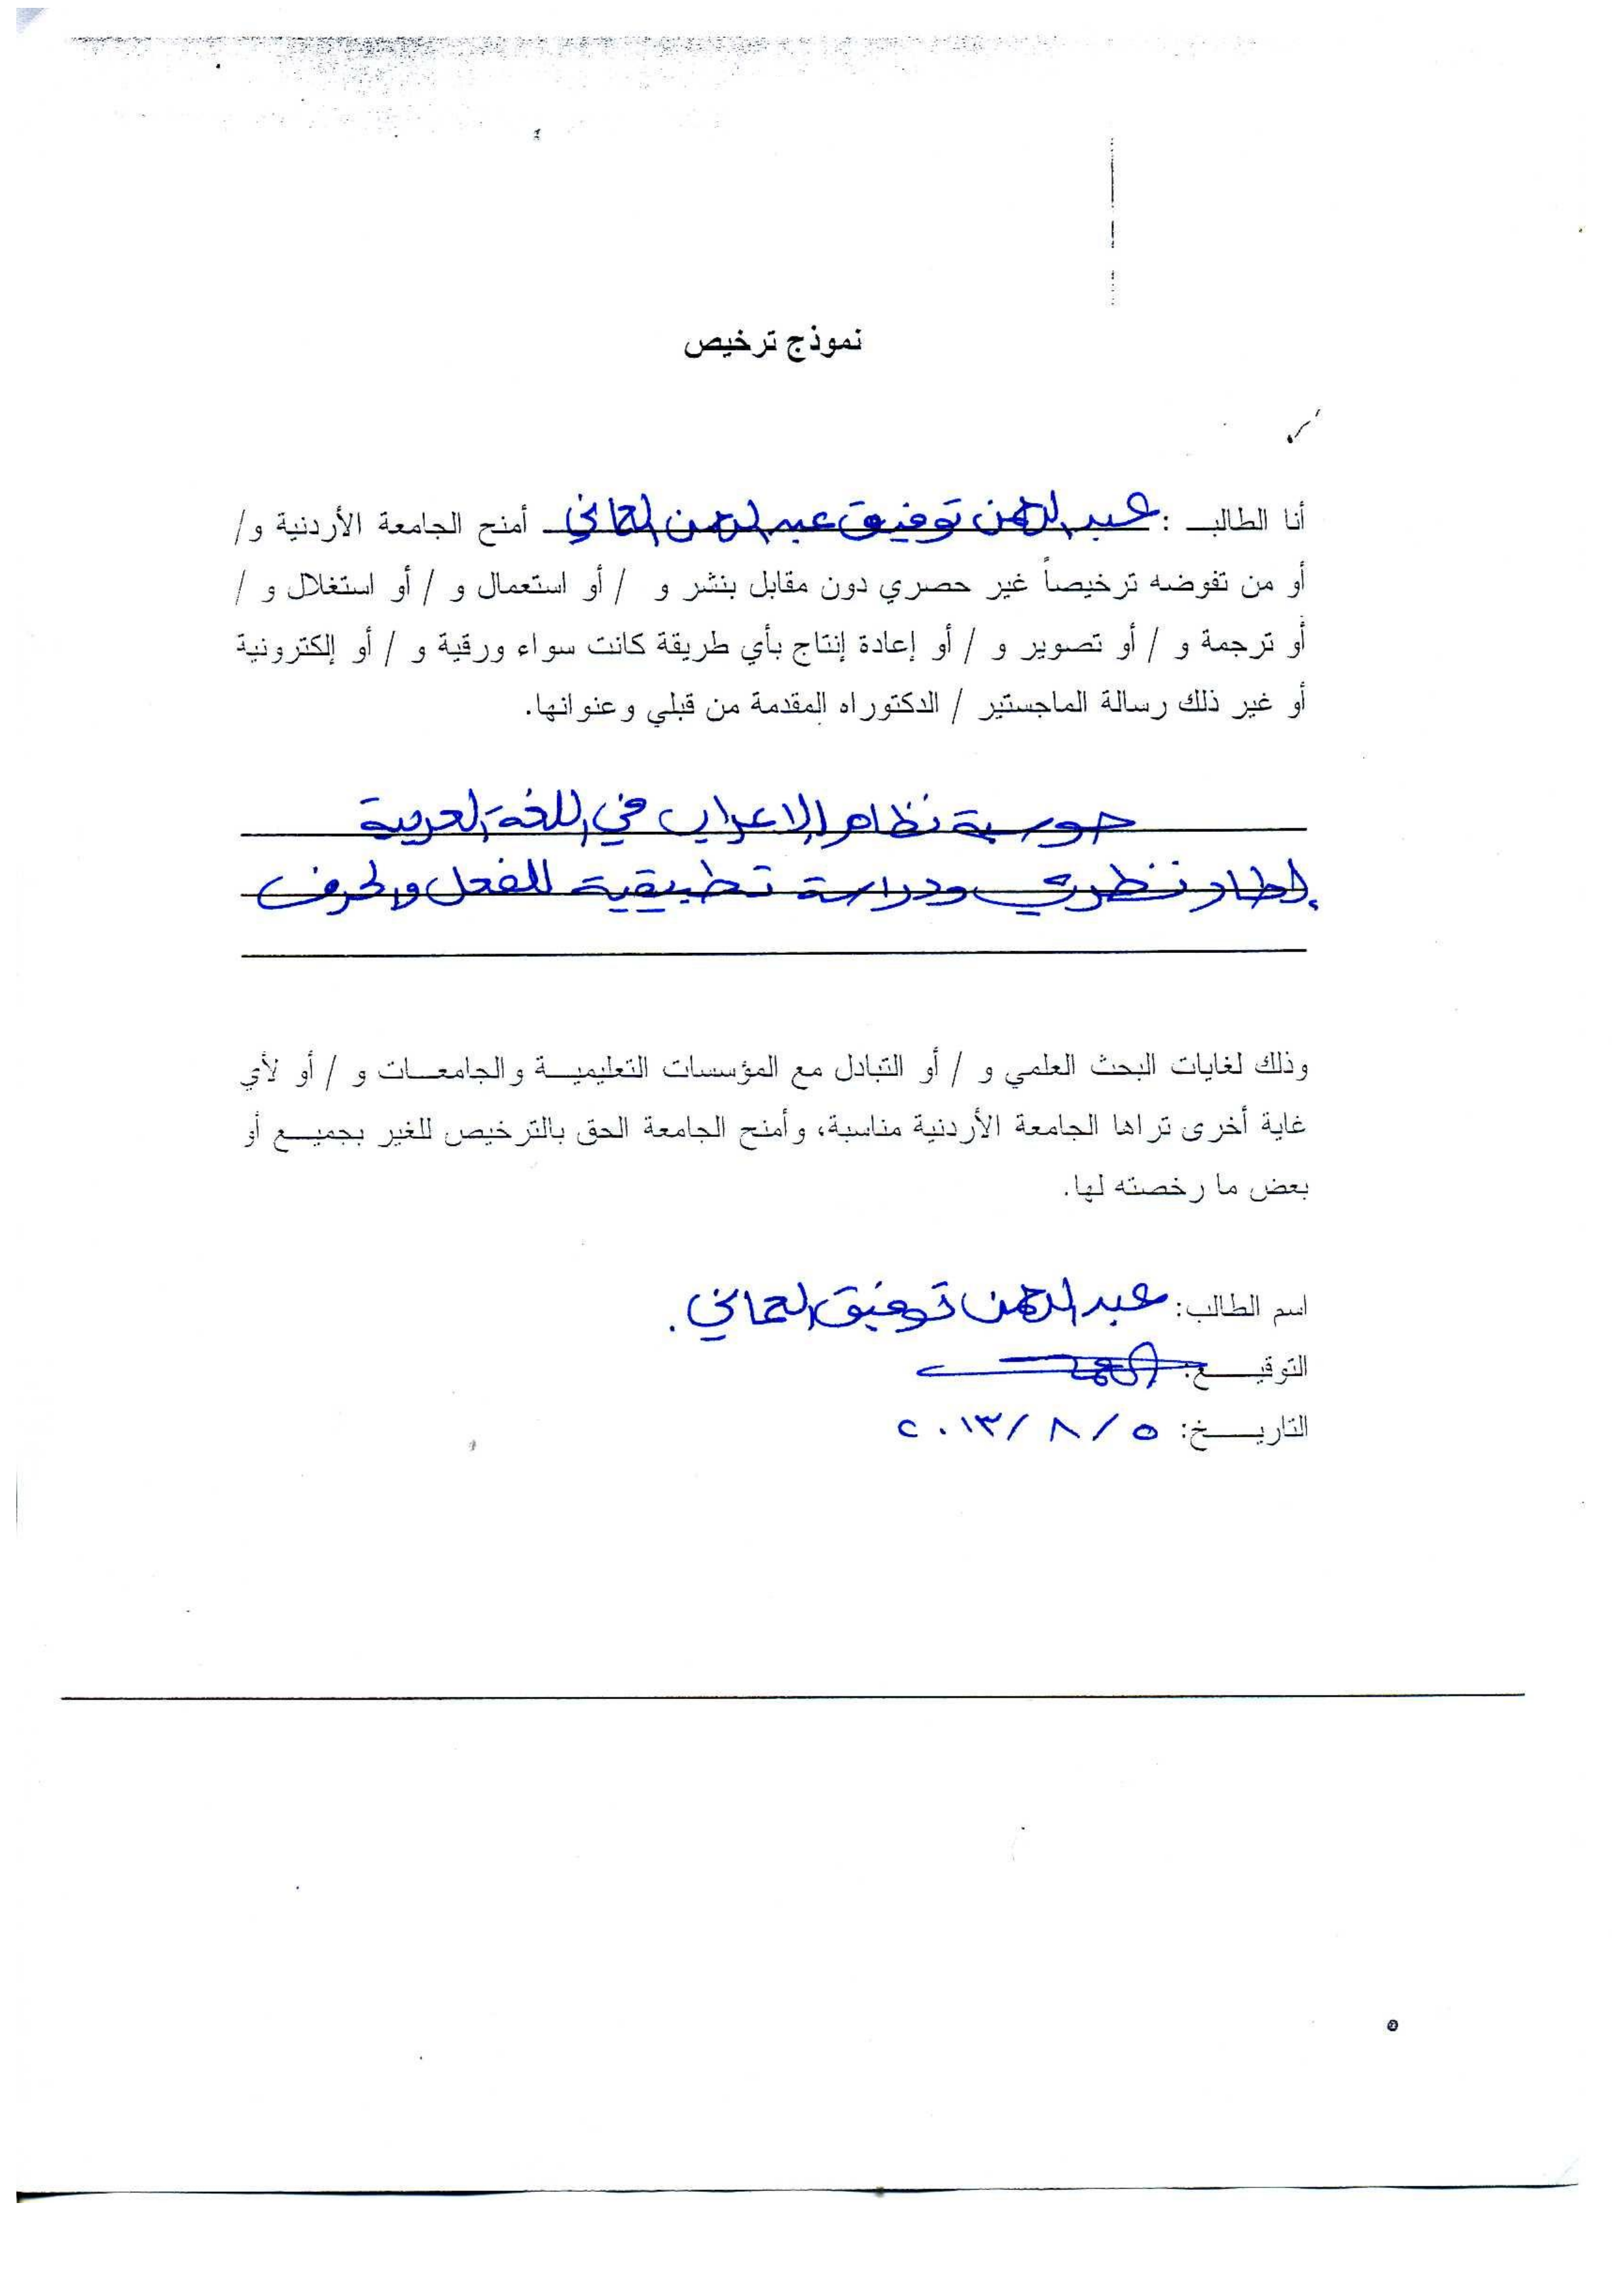 نموذج ترخيص
أنا الطالب : عبد الرحمن توفيق عبد الرحمن أمنح الجامعة الأردنية و/
أو من تفوضه ترخيصاً غير حصري دون مقابل بنشر و / أو استعمال و / أو استغلال و /
أو ترجمة و / أو تصوير و / أو إعادة إنتاج بأي طريقة كانت سواء ورقية و / أو إلكترونية
أو غير ذلك رسالة الماجستير / الدكتوراه المقدمة من قبلي وعنوانها.
حوسبة نظام الإعراب في اللغة العربية
إطار نظري ودراسة تطبيقية للفعل والحرف
وذلك لغايات البحث العلمي و / أو التبادل مع المؤسسات التعليمية والجامعات و / أو لأي
غاية أخرى تراها الجامعة الأردنية مناسبة، وأمنح الجامعة الحق بالترخيص للغير بجميع أو
بعض ما رخصته لها.
اسم الطالب: عبد الرحمن توفيق
التوقيع:
التاريخ: ٥ / ٨ / ٢٠١٣